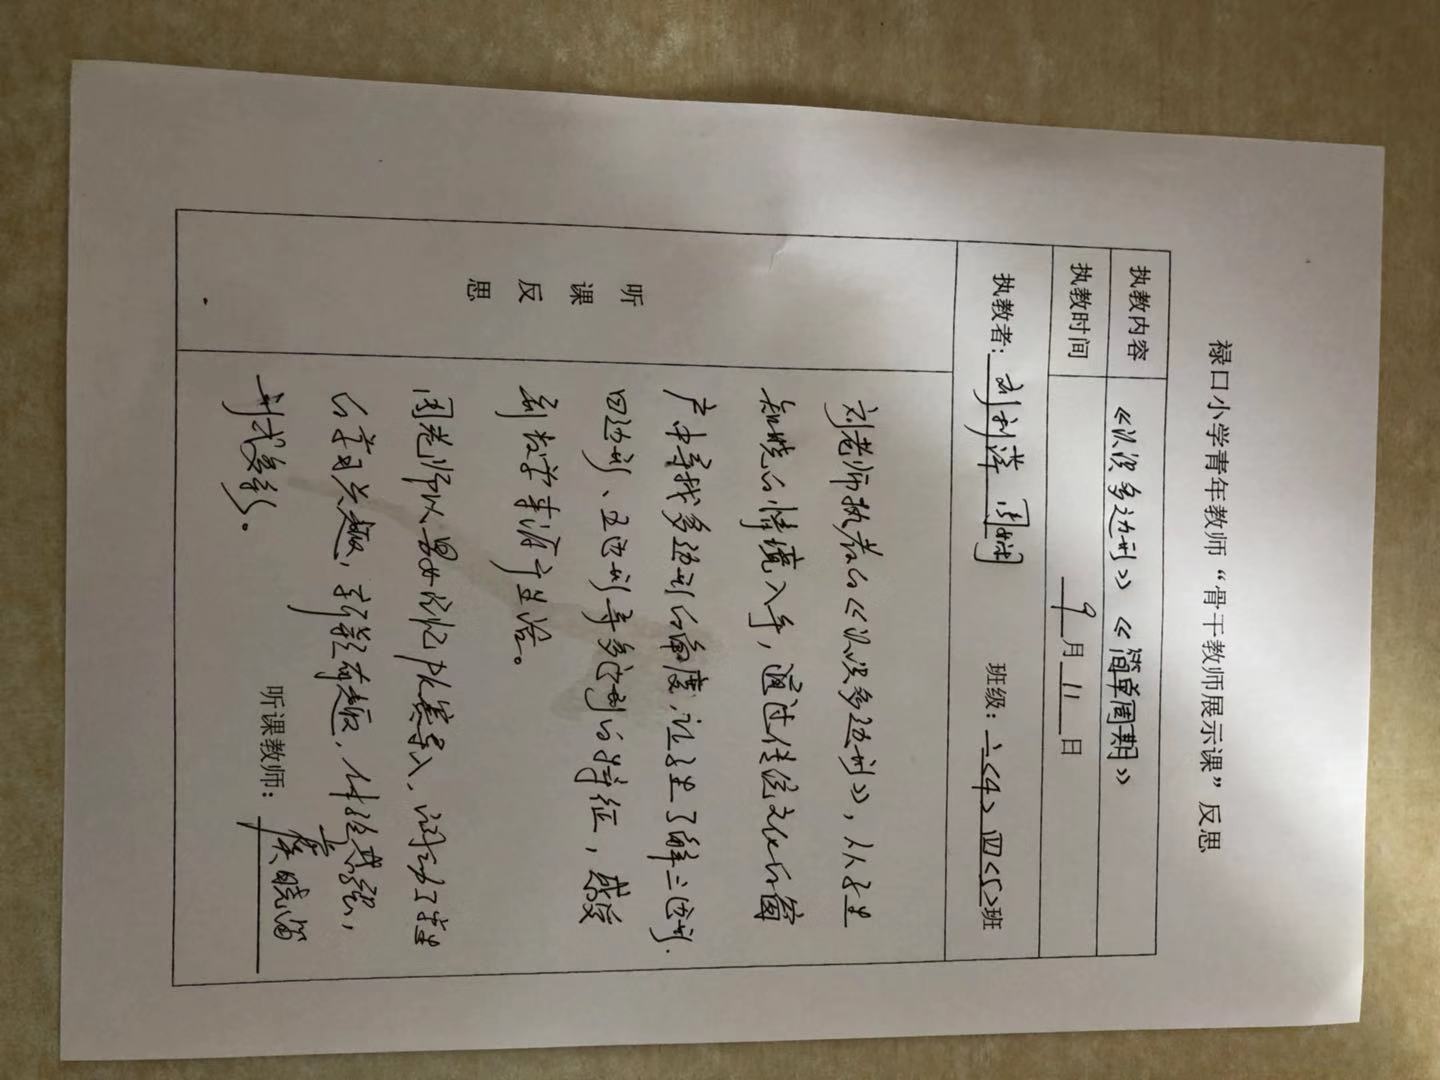 禄口小学青年教师“骨干教师展示课”反思
执教内容 《认识多边形》《简单周期》
执教时间 9月11日
执教者：刘利萍 周娟 班级：二<4> 四<5>班
听课反思
刘老师执教的《认识多边形》，从学生
知晓的情境入手，通过传统文化的窗
户中寻找多边形的角度，让学生了解三边形、
四边形、五边形等多边形的特征，感受
到数学来源于生活。
周老师以记忆力大赛导入，调动了学生
的学习兴趣，新颖有趣，体验感强，
听课教师：